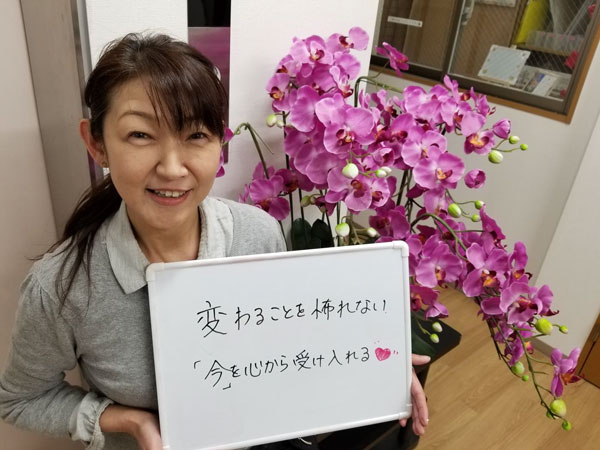 変わることを怖れない
「今」を心から受け入れる